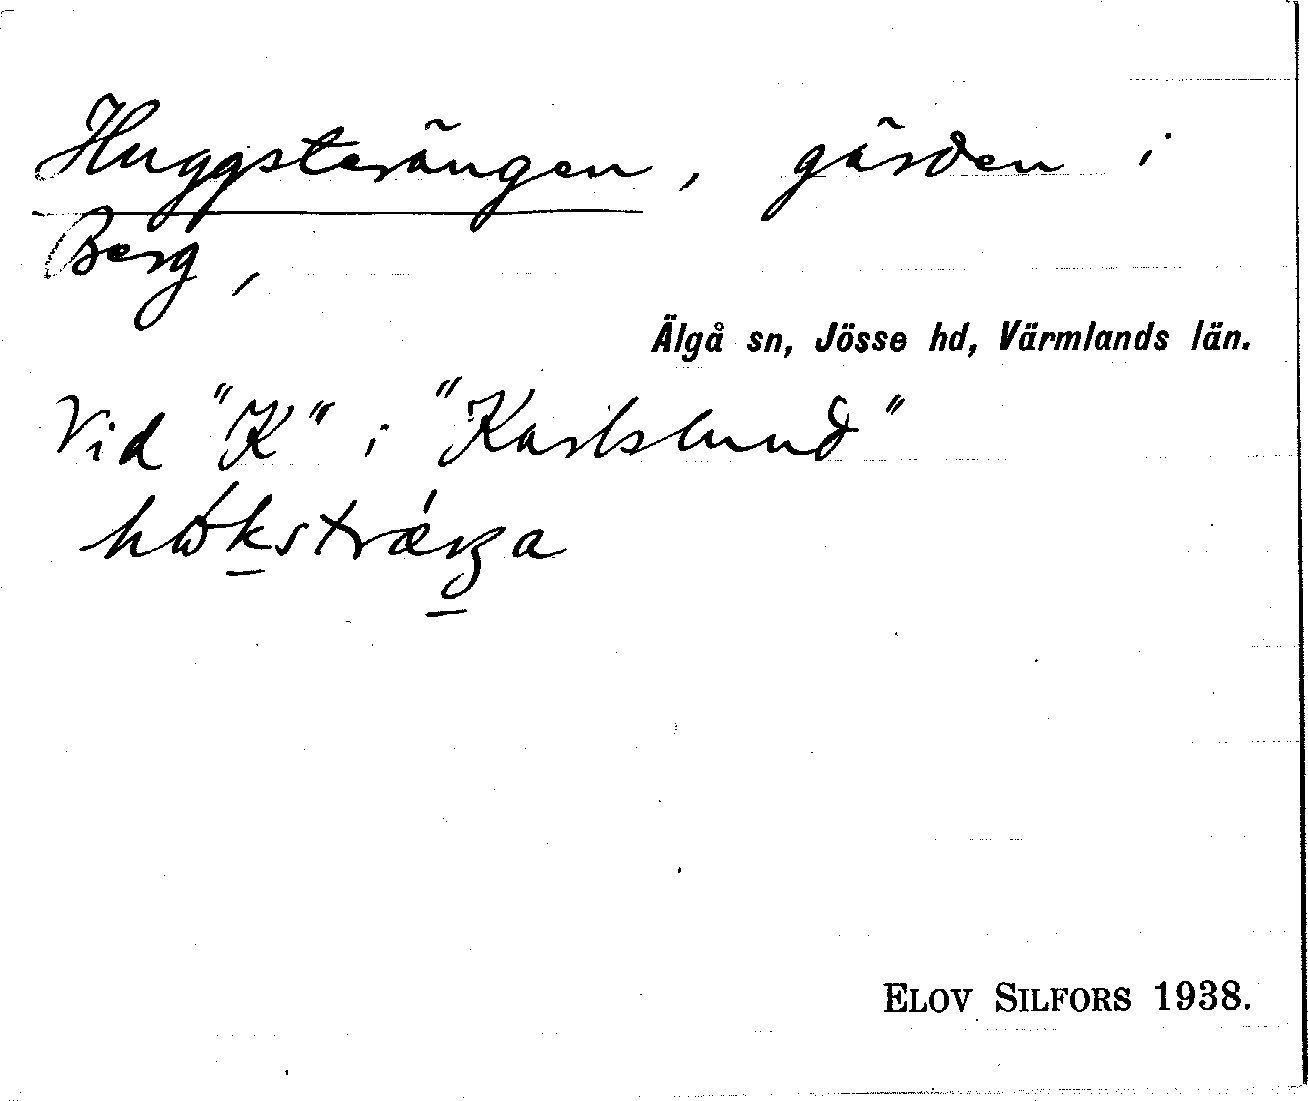 Huggsterängen, gärden i
Berg,
Älgå sn, Jösse hd, Värmlands län.
Vid "K" i "Karlslund"
ELOV SILFORS 1938.